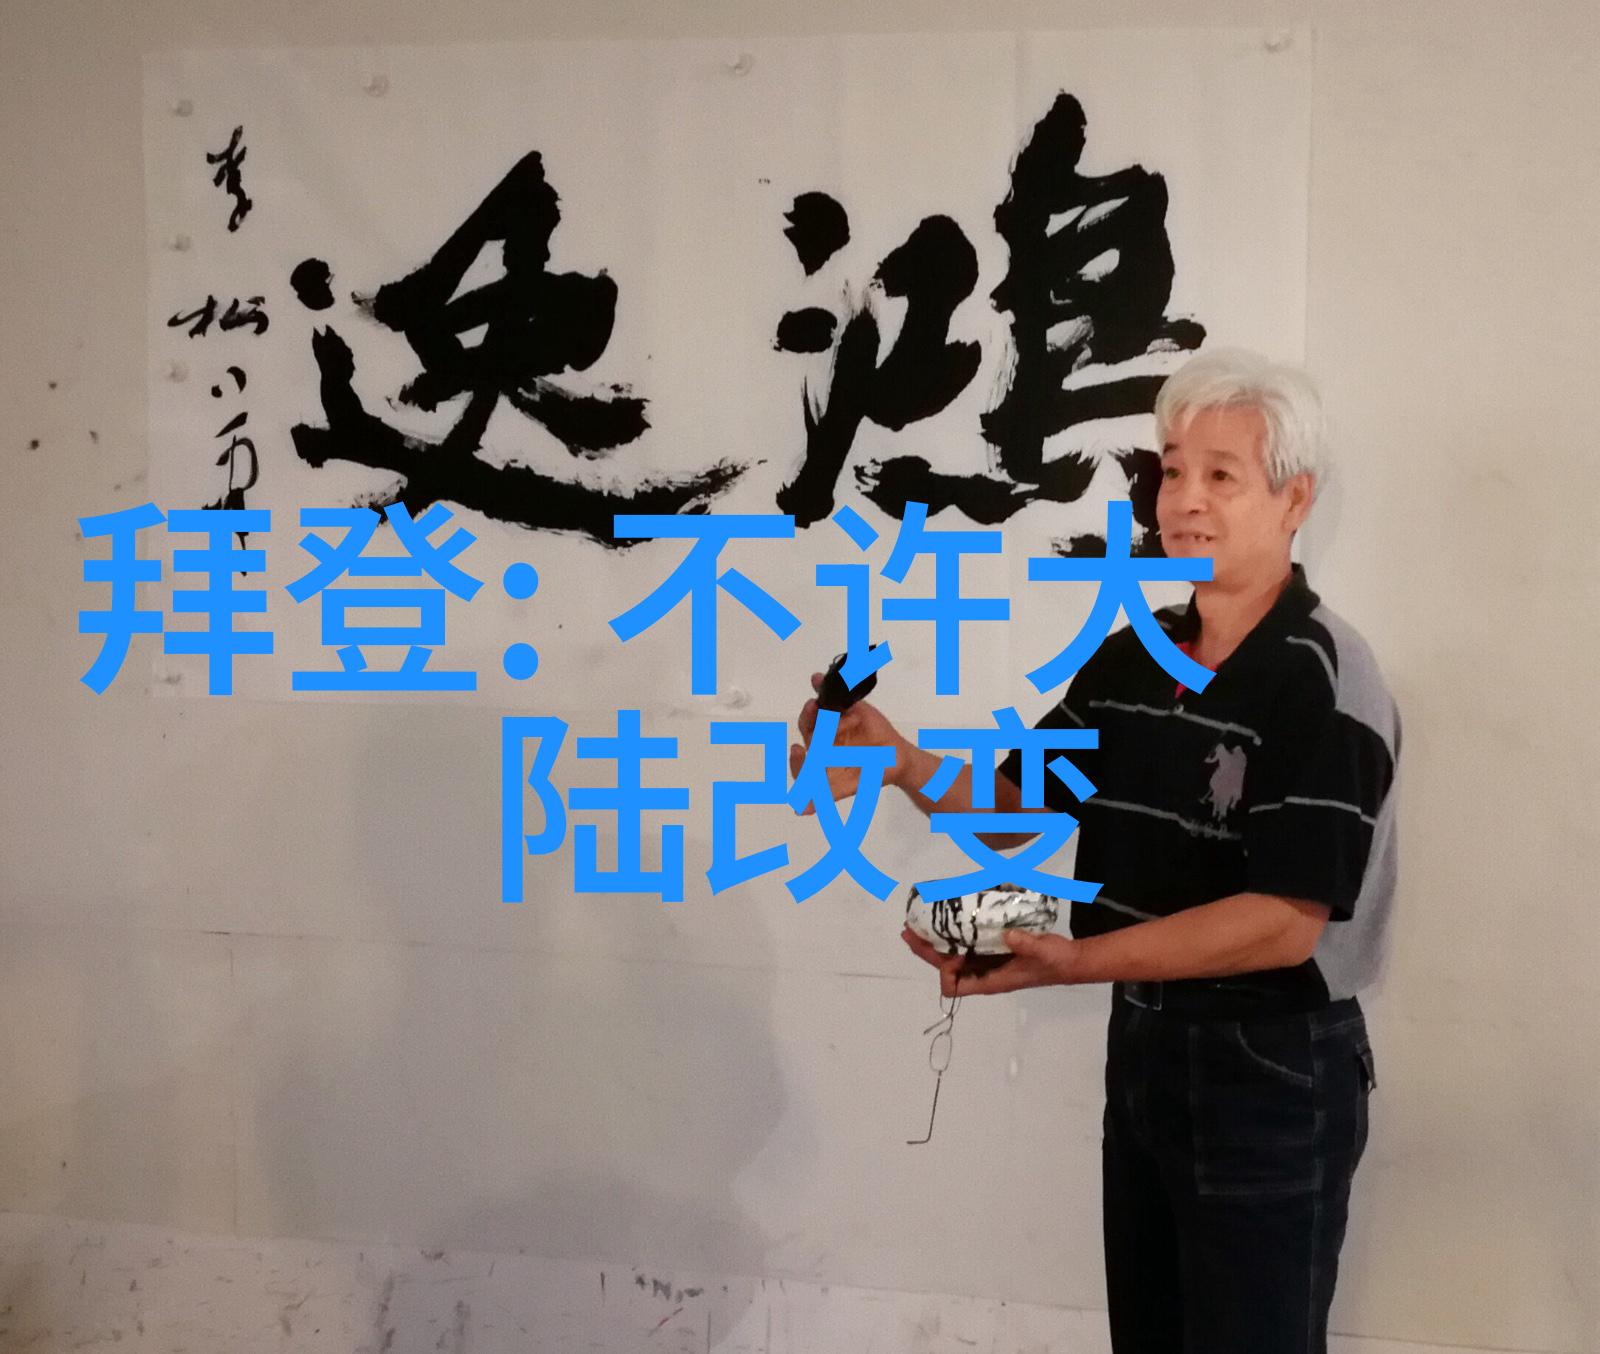 鸿逸
李松
拜登: 不许大
陆改变